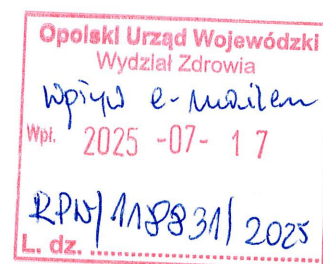 Opolski Urząd Wojewódzki
Wydział Zdrowia
Wpływ e-mailem
Wpł. 2025 -07- 17
RPW/118831/2025
L. dz. ........................